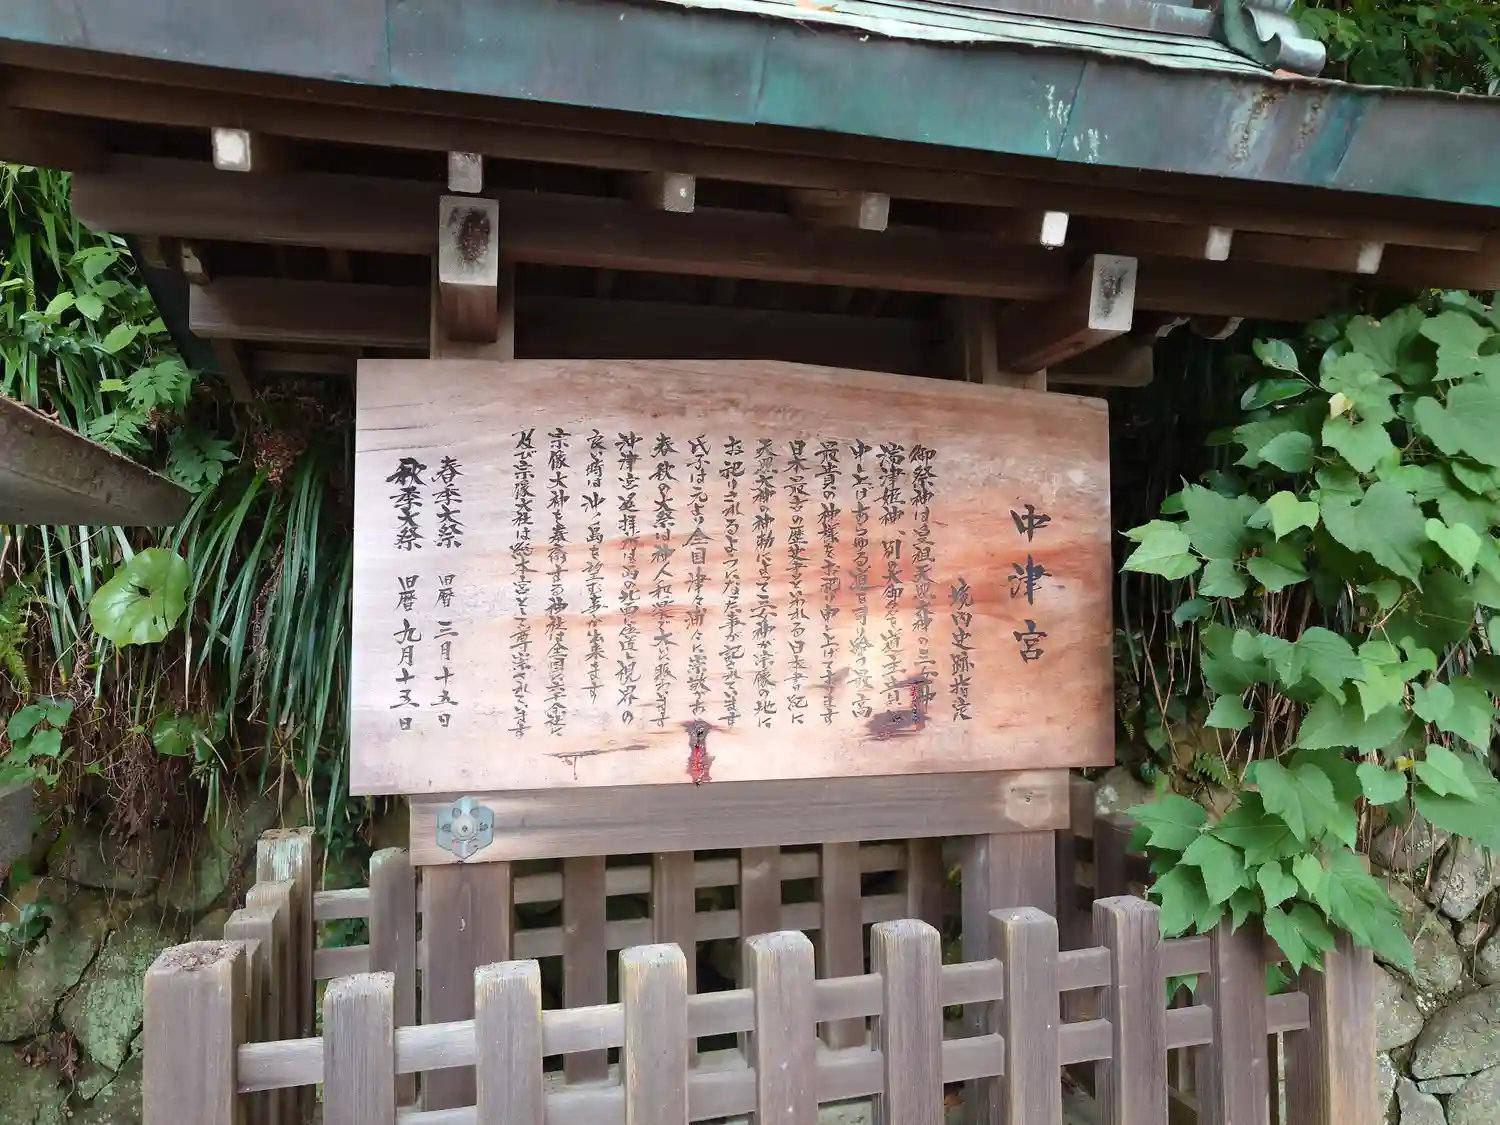 中津宮
境内史跡指定
御祭神は皇祖天照大神の三女神
湍津姫神、別の大御名を道主貴と
申し上げあらゆる道を司り給う最高
最貴の神様をお祀り申し上げてます
日本最古の歴史書といわれる日本書紀に
天照大神の神勅によって三女神が宗像の地に
お祀りされるようになった事が記されています
氏子は元より全国津々浦々に崇敬者あり
春秋の大祭は神人和楽で大いに賑わいます
沖津宮遥拝所は島北面に位置し視界の
良い時は沖ノ島を望む事が出来ます
宗像大神を奉斎する神社は全国六千余社に
及び宗像大社は総本宮として尊崇されています
春季大祭 旧暦 三月十五日
秋季大祭 旧暦 九月十五日